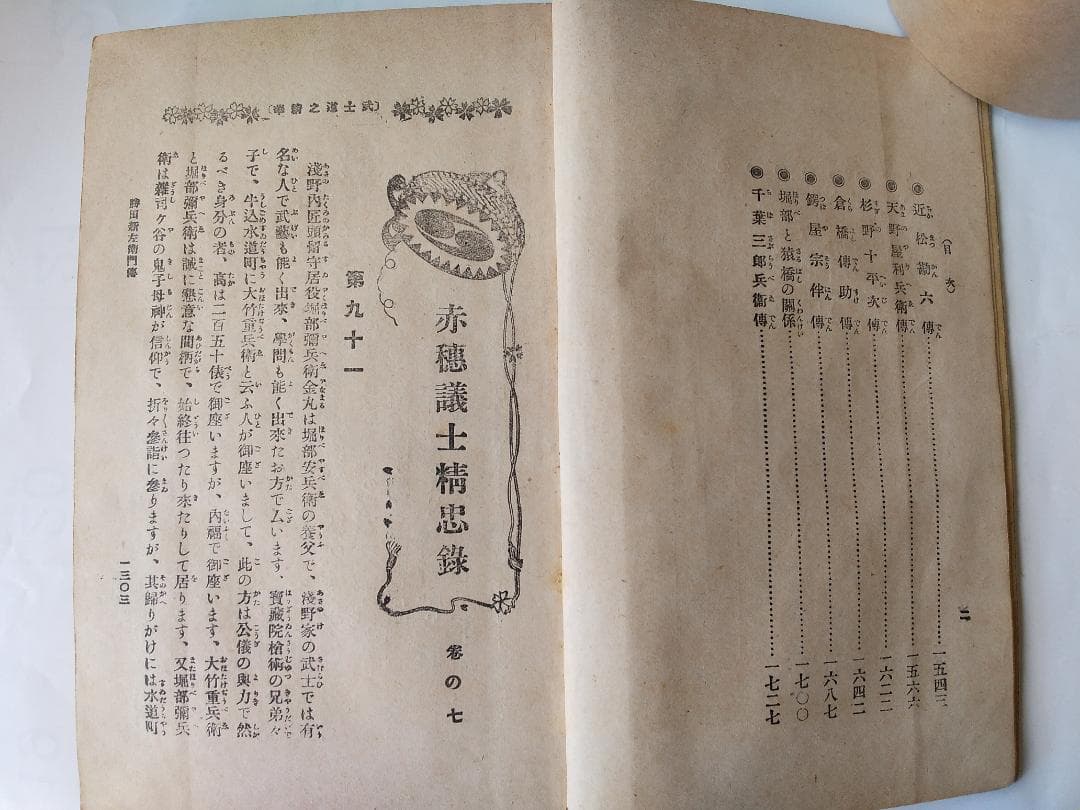 (目次)
近松勘六傳 一五四三
天野屋利兵衛傳 一五六六
杉野十平次傳 一六二二
倉橋傳助傳 一六四二
鍔屋宗伴傳 一六八七
堀部と猿橋の關係 一七〇〇
千葉三郎兵衞傳 一七二七
二
〔武士道之精華〕
赤穗議士精忠錄 卷の七
第九十一
淺野内匠頭留守居役堀部彌兵衞金丸は堀部安兵衞の養父で、淺野家の武士では有
名な人で武藝も能く出來、學問も能く出來たお方で厶います、寳藏院槍術の兄弟々
子で、牛込水道町に大竹重兵衞と云ふ人が御座いまして、此の方は公儀の與力で然
るべき身分の者、高は二百五十俵で御座いますが、内福で御座います、大竹重兵衞
と堀部彌兵衞は誠に懇意な間柄で、始終往つたり來たりして居ります、又堀部彌兵
衞は雜司ヶ谷の鬼子母神が信仰で、折々參詣に參りますが、其歸りがけには水道町
勝田新左衞門傳
一三〇三